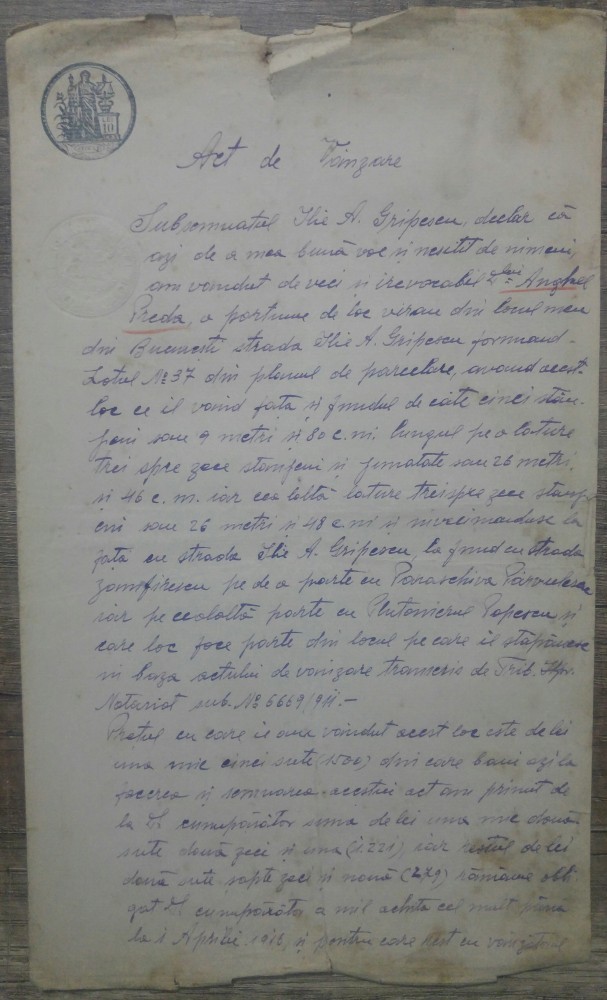 Act de Vânzare
Subsemnatul Ilie A. Gripescu, declar că
azi de a mea bună voe și nesilit de nimeni,
am vândut de veci și irevocabil D-lui Anghel
Preda, o porțiune de loc viran din locul meu
din București strada Ilie A. Gripescu formând
Lotul No 37 din planul de parcelare, având acest
loc ce îl vând fața și fundul de câte cinci stân-
jeni sau 9 metri și 80 c.m. lungul pe o lature
trei spre zece stânjeni și jumătate sau 26 metri
și 46 c.m. iar cea laltă lature treispre zece stânj
eni sau 26 metri și 48 c.m. și învecinânduse la
fața cu strada Ilie A. Gripescu, la fund cu strada
Zamfirescu pe de o parte cu Paraschiva Pârvulescu
iar pe cealaltă parte cu Plutonierul Popescu și
care loc face parte din locul pe care îl stăpânesc
în baza actului de vânzare transcris de Trib. Ilfov
Notariat sub. No 6669/911.—
Prețul cu care i-am vândut acest loc este de lei
una mie cinci sute (1500) din care bani azi la
facerea și semnarea acestui act am primit de
la Dl. cumpărător suma de lei una mie două
sute două zeci și una (1.221), iar restul de lei
două sute șapte zeci și nouă (279) rămâne obli-
gat Dl. cumpărător a mi-l achita cel mult până
la 1 Aprilie 1916, și pentru care rest eu vânzătorul